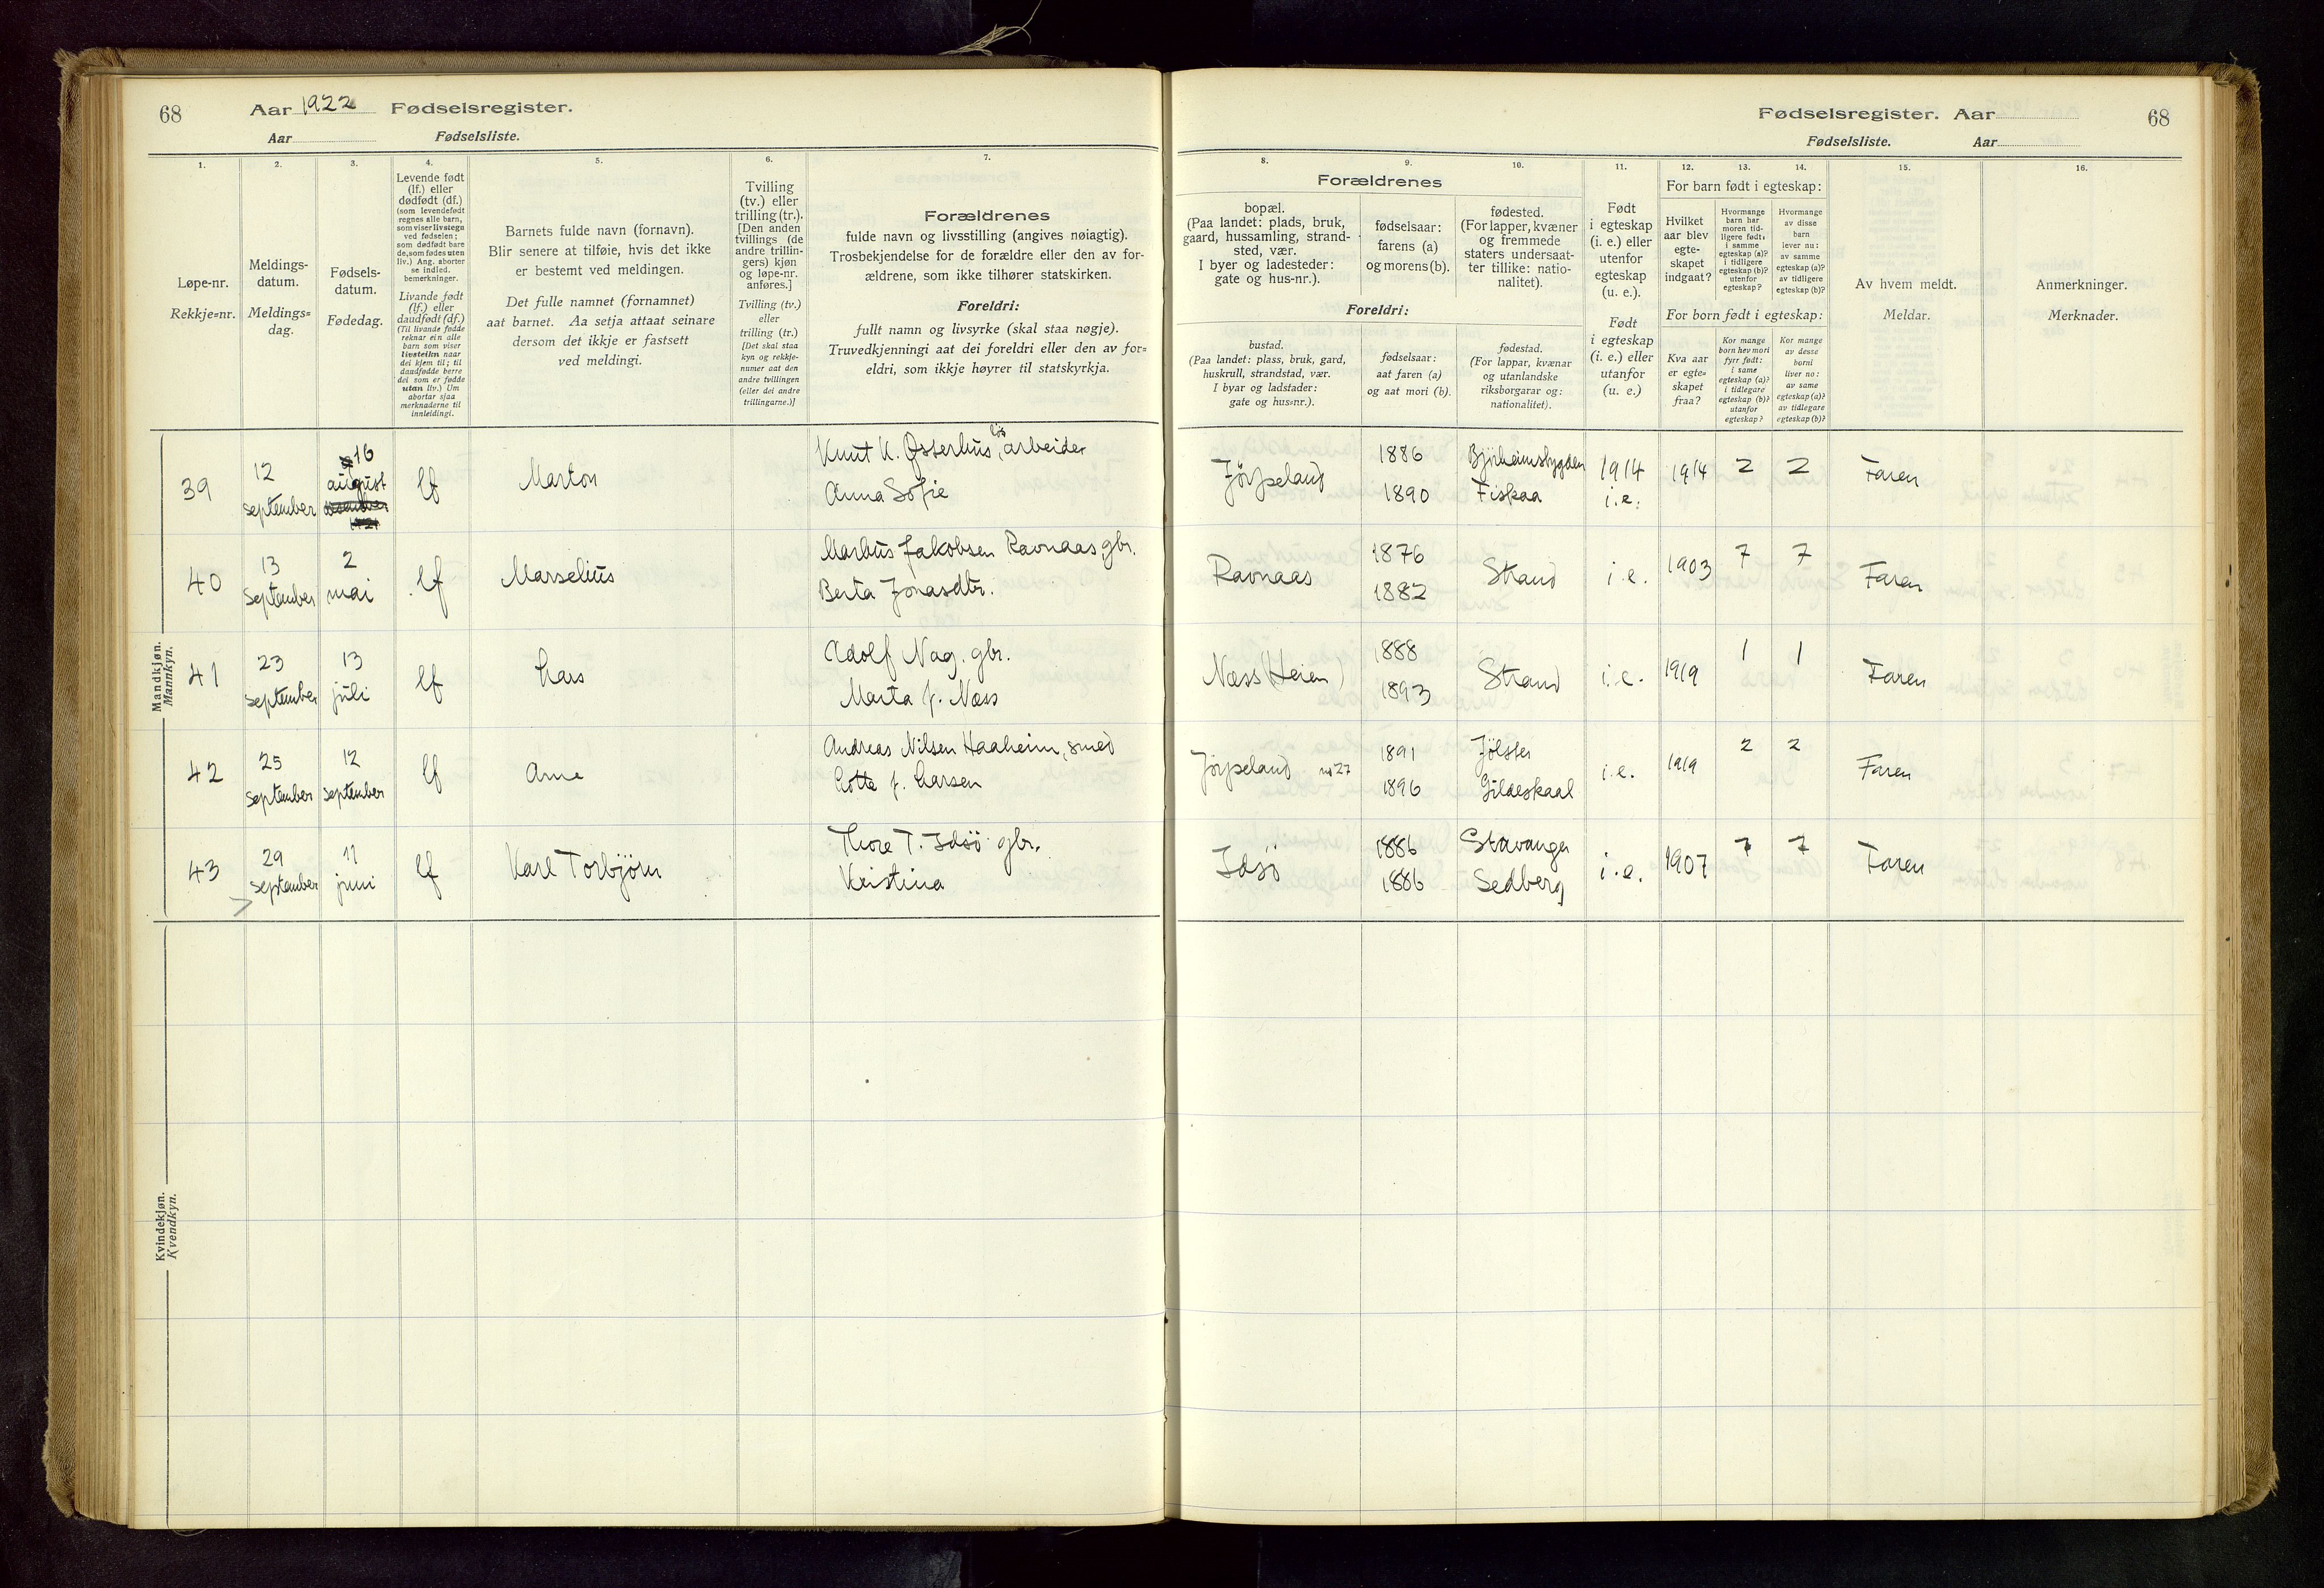 68
Aar 1922 Fødselsregister.
Aar Fødselsliste.
1.
2.
3.
4.
5.
6.
7.
Løpe-nr.
Rekkje=nr.
Meldings-
datum.
Meldings=
dag.
Fødsels-
datum.
Fødedag.
Levende født
(lf.) eller
dødfødt (df.)
(som levendefødt
regnes alle barn,
som viser livstegn
ved fødselen;
som dødfødt bare
de, som fødes uten
liv.) Ang. aborter
se indled.
bemerkninger.
Livande født
(lf.) eller
daudfødt (df.)
(Til livande fødde
reknar ein alle
barn som viser
livsteikn naar
dei kjem til; til
daudfødde berre
dei som er fødde
utan liv.) Um
abortar sjaa
merknaderne til
innleidingi.
Barnets fulde navn (fornavn).
Blir senere at tilføie, hvis det ikke
er bestemt ved meldingen.
Det fulle namnet (fornamnet)
aat barnet. Aa setja attaat seinare
dersom det ikkje er fastsett
ved meldingi.
Tvilling
(tv.) eller
trilling (tr.).
[Den anden
tvillings (de
andre trillin-
gers) kjøn
og løpe-nr.
anføres.]
Tvilling (tv.)
eller
trilling (tr.)
[Det skal staa
kyn og rekkje-
numer aat den
andre tvillingen
(eller dei andre
trillingarne.)]
Forældrenes
fulde navn og livsstilling (angives nøiagtig).
Trosbekjendelse for de forældre eller den av for-
ældrene, som ikke tilhører statskirken.
Foreldri:
fullt namn og livsyrke (skal staa nøgje).
Truvedkjenningi aat dei foreldri eller den av for=
eldri, som ikkje høyrer til statskyrkja.
Mandkjøn.
Mannkyn.
39
12
september
16
august
lf
Marton
Knut K. Østerhus, løs arbeider
Anna Sofie
40
13
September
2
mai
lf
Marselius
Markus Jakobsen Ravnaas, gbr.
Berta Jonasdtr.
41
23
september
13
juli
lf
Lars
Adolf Nag. gbr.
Marta f. Næss
42
25
September
12
september
lf
Arne
Andreas Nilsen Haaheim, smed
Lotte f. Larsen
43
29
september
11
juni
lf
Karl Torbjörn
Thore T. Idsö gbr.
Kristina
Kvindekjøn.
Kvendkyn.
Fødselsregister. Aar 68
Fødselsliste. Aar
8.
9.
10.
11.
12.
13.
14.
15.
16.
Forældrenes
bopæl.
(Paa landet: plads, bruk,
gaard, hussamling, strand-
sted, vær.
I byer og ladesteder:
gate og hus-nr.).
fødselsaar:
farens (a)
og morens (b).
fødested.
(For lapper, kvæner
og fremmede
staters undersaat-
ter tillike: natio-
nalitet).
Foreldri:
bustad.
(Paa landet: plass, bruk, gard,
huskrull, strandstad, vær.
I byar og ladstader:
gate og hus=nr.).
fødselsaar:
aat faren (a)
og aat mori (b).
fødestad.
(For lappar, kvænar
og utanlandske
riksborgarar og:
nationalitet).
Født
i egteskap
(i. e.) eller
utenfor
egteskap
(u. e.).
Født
i egteskap
(i. e.) eller
utanfor
(u. e.)
For barn født i egteskap:
Hvilket
aar blev
egte-
skapet
indgaat?
Hvormange
barn har
moren tid-
ligere født:
i samme
egteskap (a)?
i tidligere
egteskap (b)?
utenfor
egteskap?
Hvormange
av disse
barn
lever nu:
av samme
egteskap (a)?
av tidligere
egteskap (b)?
For born født i egteskap:
Kva aar
er egte=
skapet
fraa?
Kor mange
born hev mori
fyrr født:
i same
egteskap (a)?
i tidlegare
egteskap (b)?
utanfor
egteskap?
Kor mange
av desse
borni
liver no:
av same
egteskap (a)?
av tidlegare
egteskap (b)?
Av hvem meldt.
Meldar.
Anmerkninger.
Merknader.
Jörpeland
1886
1890
Bjørheimsbygden
Fiskaa
1914
i.e.
1914
2
2
Faren
Ravnaas
1876
1882
Strand
i.e.
1903
7
7
Faren
Næss (Heien)
1888
1893
Strand
i.e.
1919
1
1
Faren
Jörpeland no 27
1891
1896
Jölster
Gildeskaal
i.e.
1919
2
2
Faren
Idsö
1886
1886
Stavanger
Sedberg
i.e.
1907
7
7
Faren